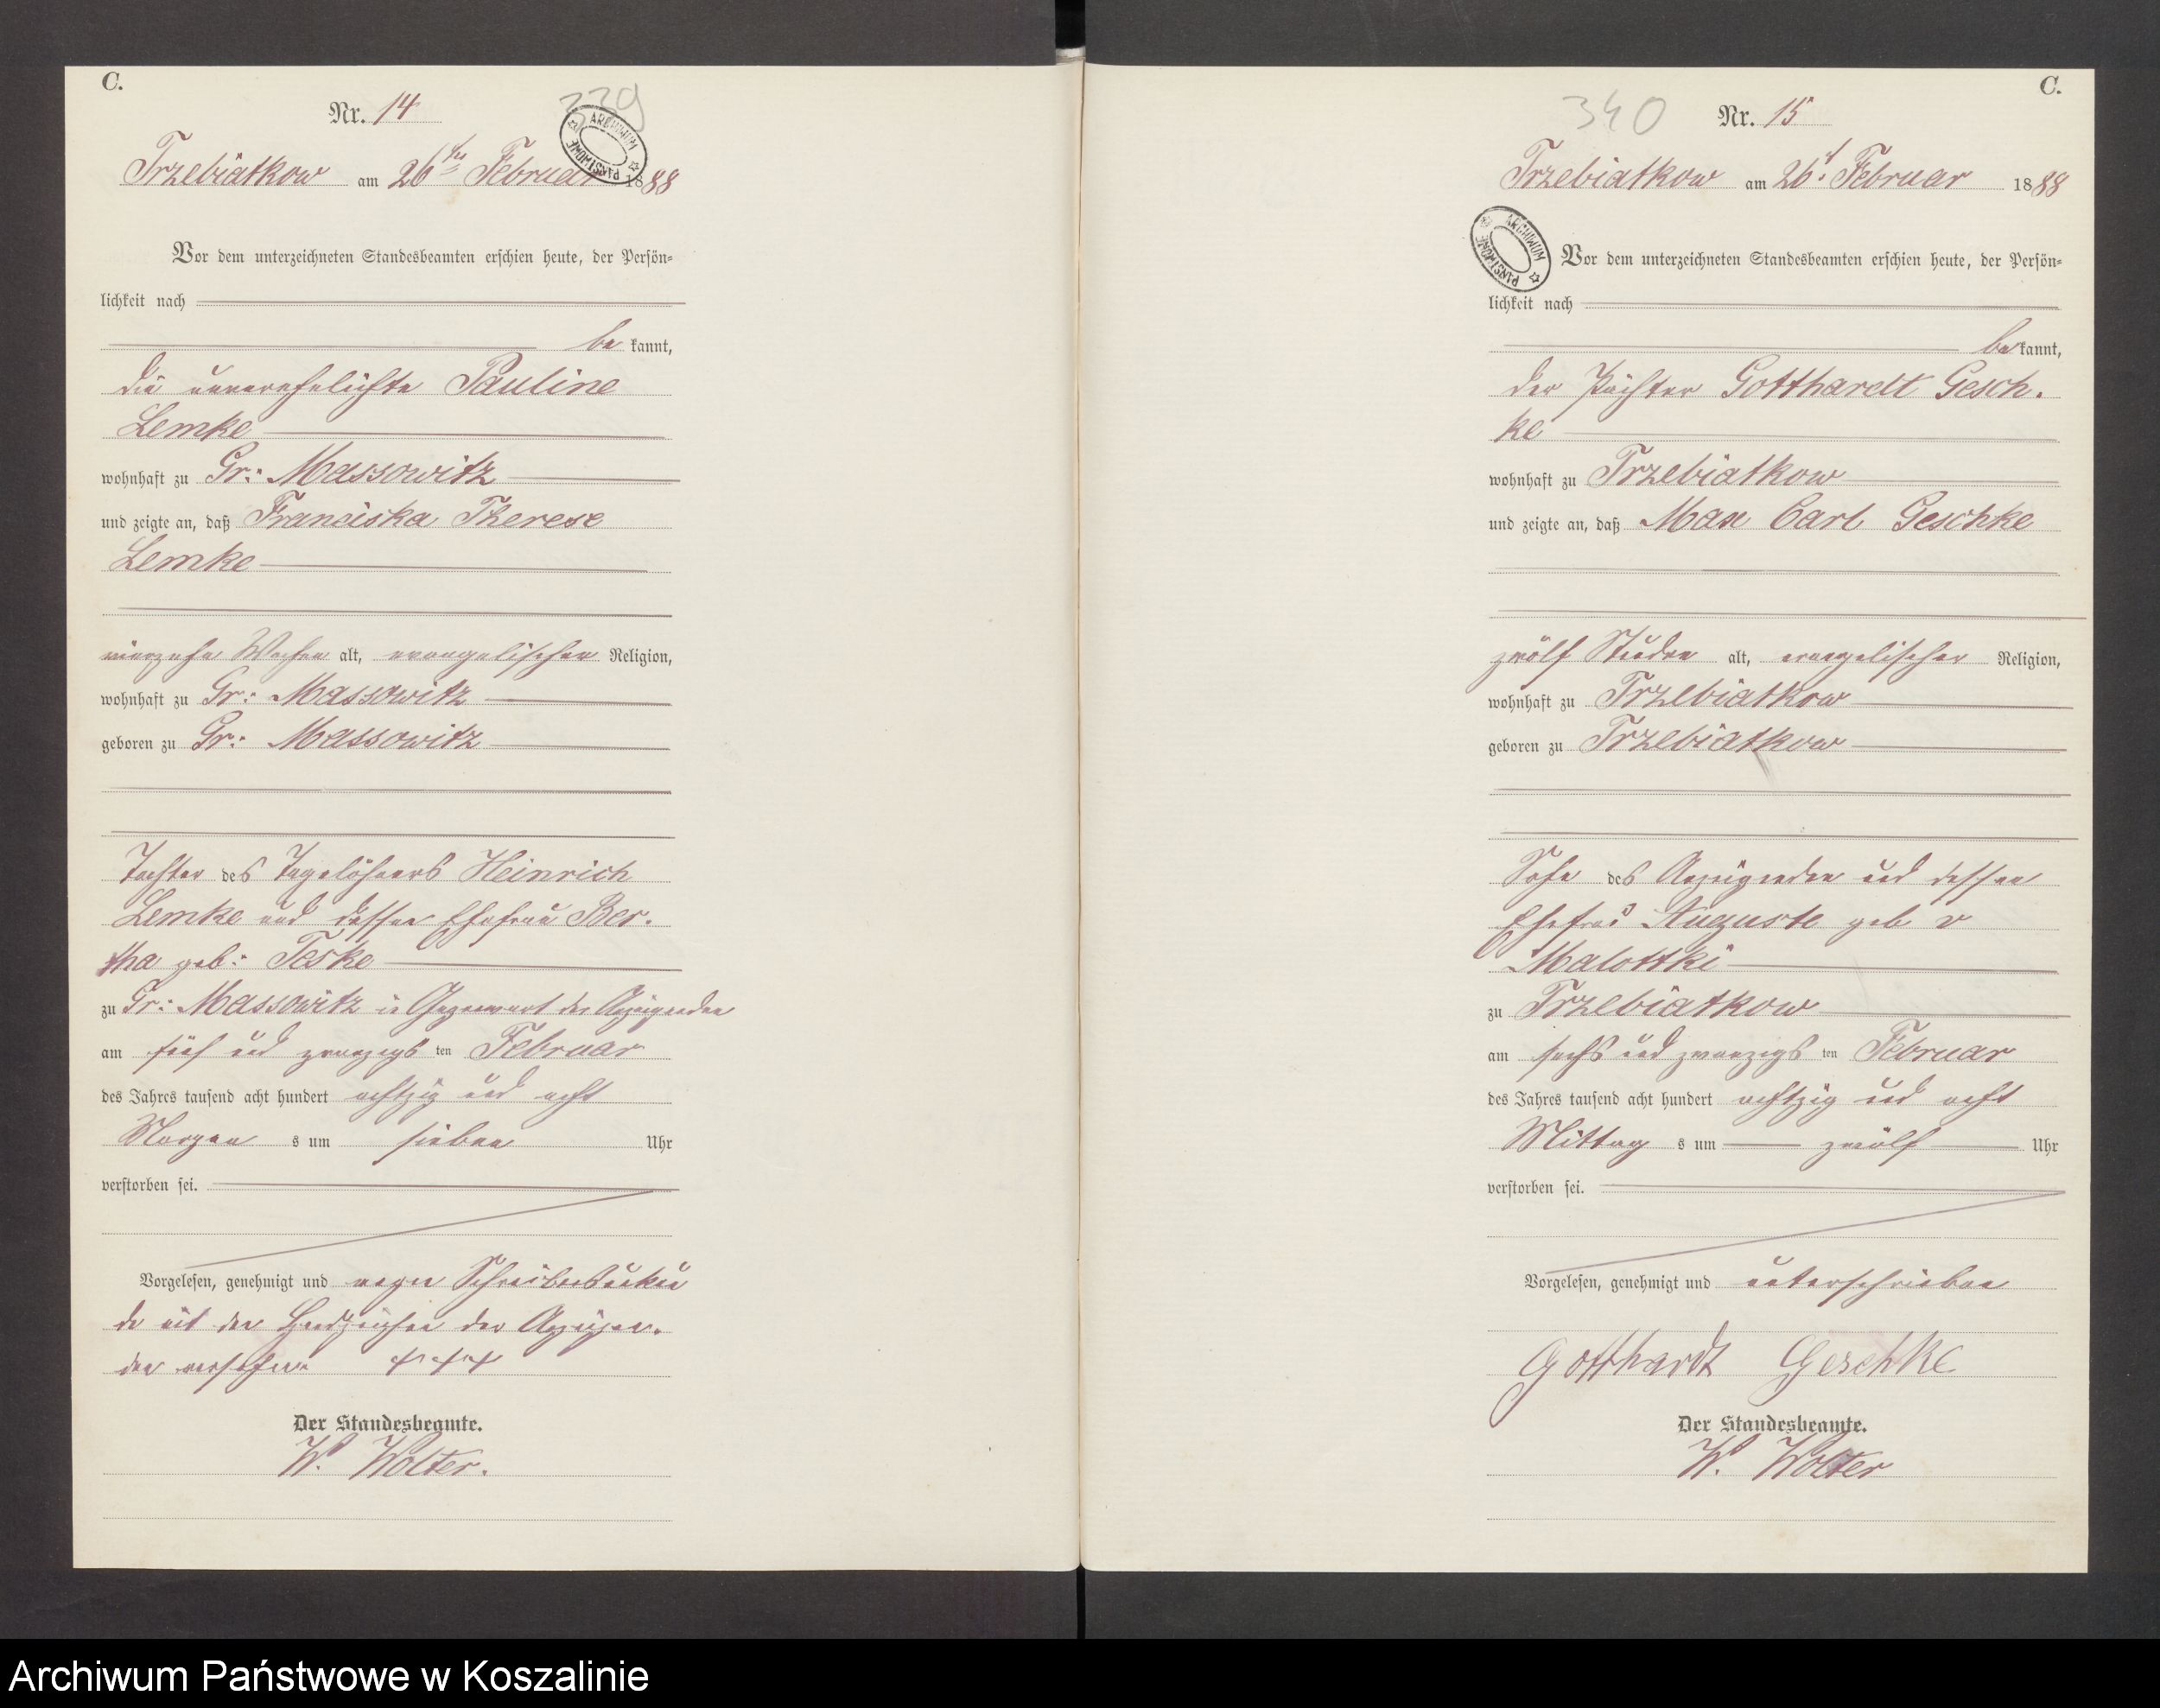 C.
339
Nr. 14
ARCHIWUM PAŃSTWOWE
Trzebiatkow am 26ten Februar 1888
Vor dem unterzeichneten Standesbeamten erschien heute, der Persön-
lichkeit nach
be kannt,
die unverehelichte Pauline
Lemke
wohnhaft zu Gr: Massowitz
und zeigte an, daß Franciska Therese
Lemke
vierzehn Wochen alt, evangelischer Religion,
wohnhaft zu Gr: Massowitz
geboren zu Gr: Massowitz
Tochter des Tagelöhners Heinrich
Lemke und dessen Ehefrau Ber-
tha geb: Teske
zu Gr: Massowitz in Gegenwart der Anzeigenden
am fünf und zwanzigs ten Februar
des Jahres tausend acht hundert achtzig und acht
Morgen s um sieben Uhr
verstorben sei.
Vorgelesen, genehmigt und wegen Schreibensunkun
de mit den Handzeichen der Anzeigen-
den versehen. +++
Der Standesbeamte.
W. Wolter.
C.
340
Nr. 15
Trzebiatkow am 26t Februar 1888
ARCHIWUM PAŃSTWOWE
Vor dem unterzeichneten Standesbeamten erschien heute, der Persön-
lichkeit nach
be kannt,
der Pächter Gotthardt Gesch-
ke
wohnhaft zu Trzebiatkow
und zeigte an, daß Max Carl Geschke
zwölf Stunden alt, evangelischer Religion,
wohnhaft zu Trzebiatkow
geboren zu Trzebiatkow
Sohn des Anzeigenden und dessen
Ehefrau Auguste geb v
Malottki
zu Trzebiatkow
am sechs und zwanzigs ten Februar
des Jahres tausend acht hundert achtzig und acht
Mittag s um zwölf Uhr
verstorben sei.
Vorgelesen, genehmigt und unterschrieben
Gotthardt Geschke
Der Standesbeamte.
W. Wolter
Archiwum Państwowe w Koszalinie